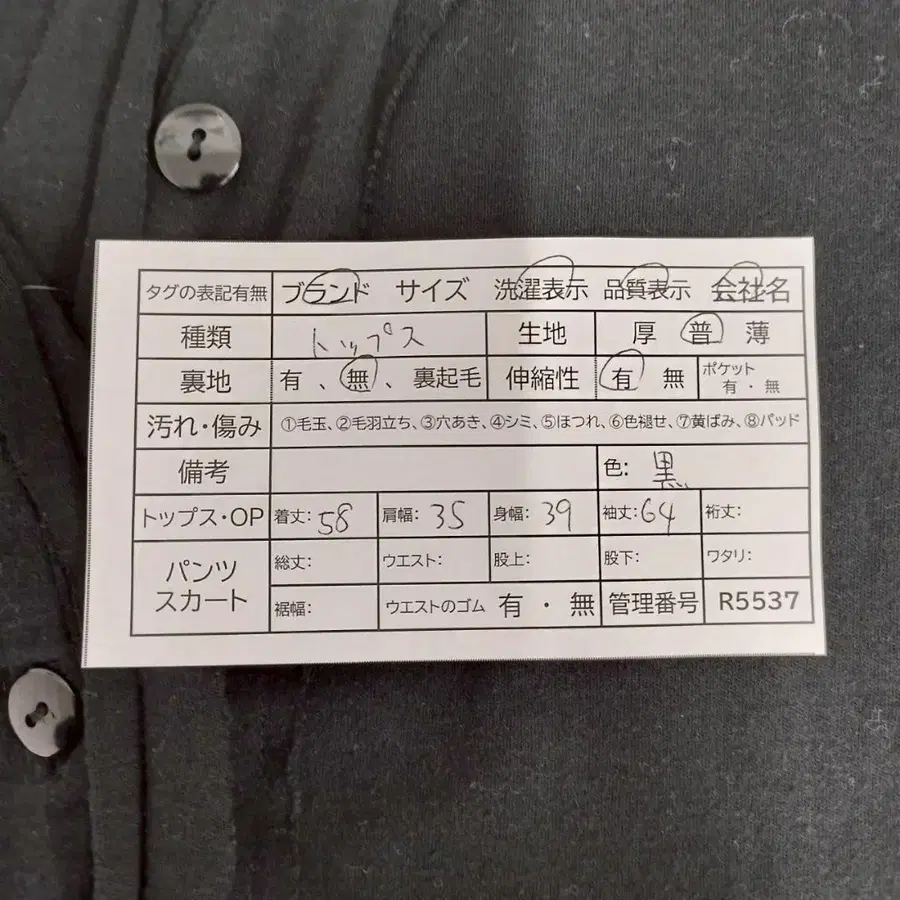 タグの表記有無 ブランド サイズ 洗濯表示 品質表示 会社名
種類 トップス 生地 厚 普 薄
裏地 有 、無 、裏起毛 伸縮性 有 無 ポケット 有 ・ 無
汚れ・傷み ①毛玉、②毛羽立ち、③穴あき、④シミ、⑤ほつれ、⑥色褪せ、⑦黄ばみ、⑧パッド
備考 色: 黒
トップス・OP 着丈: 58 肩幅: 35 身幅: 39 袖丈: 64 裄丈:
パンツ スカート 総丈: ウエスト: 股上: 股下: ワタリ:
裾幅: ウエストのゴム 有 ・ 無 管理番号 R5537